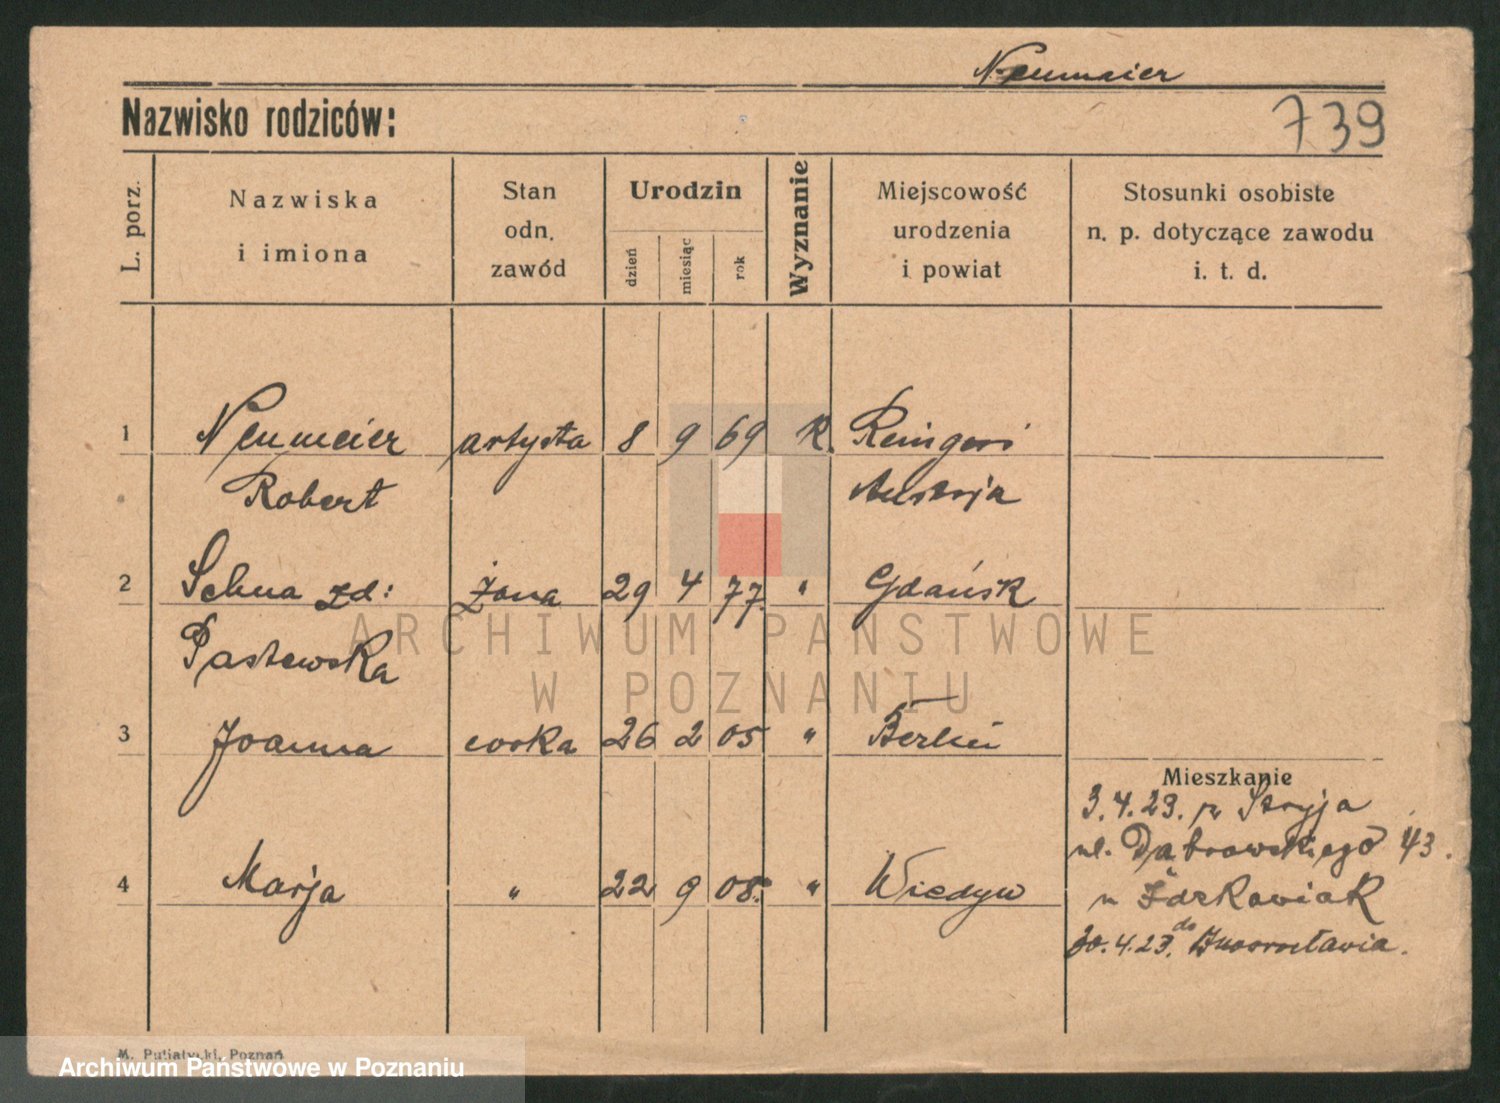 Neumeier
Nazwisko rodziców:
739
L. porz.
Nazwiska
i imiona
Stan
odn.
zawód
Urodzin
dzień
miesiąc
rok
Wyznanie
Miejscowość
urodzenia
i powiat
Stosunki osobiste
n. p. dotyczące zawodu
i. t. d.
1 Neumeier artysta 8 9 69 K.
Robert Austrja
2 Selma zd: żona 29 4 77. " Gdańsk
Pastewska
3 Joanna corka 26 2 05 " Berlin
Mieszkanie
3.4.23. z Stryja
ul. Dąbrowskiego 43.
4 Marja " 22 9 08. " Wiedyw
u Zdrkowiak
30.4.23. do Inowrocławia.
M. Putiatycki, Poznań
ARCHIWUM PAŃSTWOWE
W POZNANIU
Archiwum Państwowe w Poznaniu